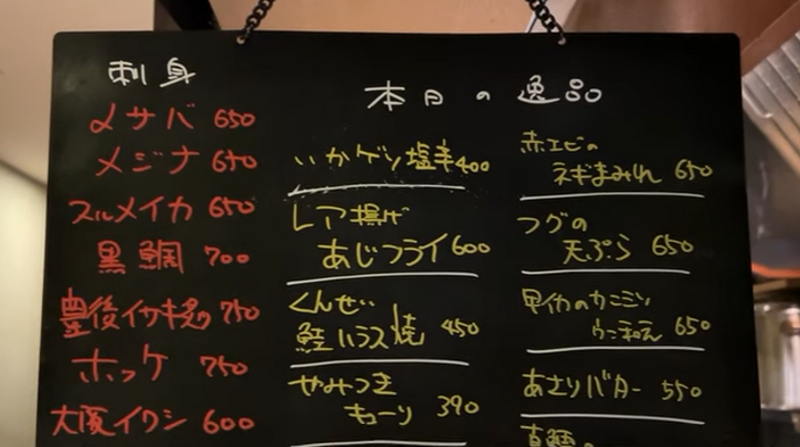 刺身
〆サバ 650
メジナ 650
スルメイカ 650
黒鯛 700
豊後イサキ炙り 750
ホッケ 750
大阪イワシ 600
本日の逸品
いかゲソ塩辛 400
レア揚げ
あじフライ 600
くんせい
鮭ハラス焼 450
やみつき
キューリ 390
赤エビの
ネギまみれ 650
フグの
天ぷら 650
甲イカのカニミソ
ウニ和え 650
あさりバター 550
真鯛の